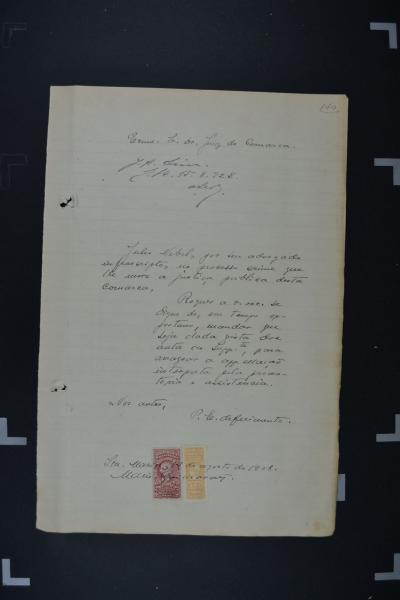 140
Exmo. S. Dr. Juiz de Comarca.
J. A. Sim.
S. M. 15. 8. 928.
Jules Nebel, por seu advogado
infrascripto, no processo crime que
lhe move a justiça publica desta
comarca,
Requer a v. exc. se
digne de, em tempo op-
portuno, mandar que
seja dada vista dos
autos ao Supp., para
arrazoar a appellação
interposta pela promo-
toria e assistencia.
Nos autos,
P. E. deferimento.
Sta. Maria, de agosto de 1928.